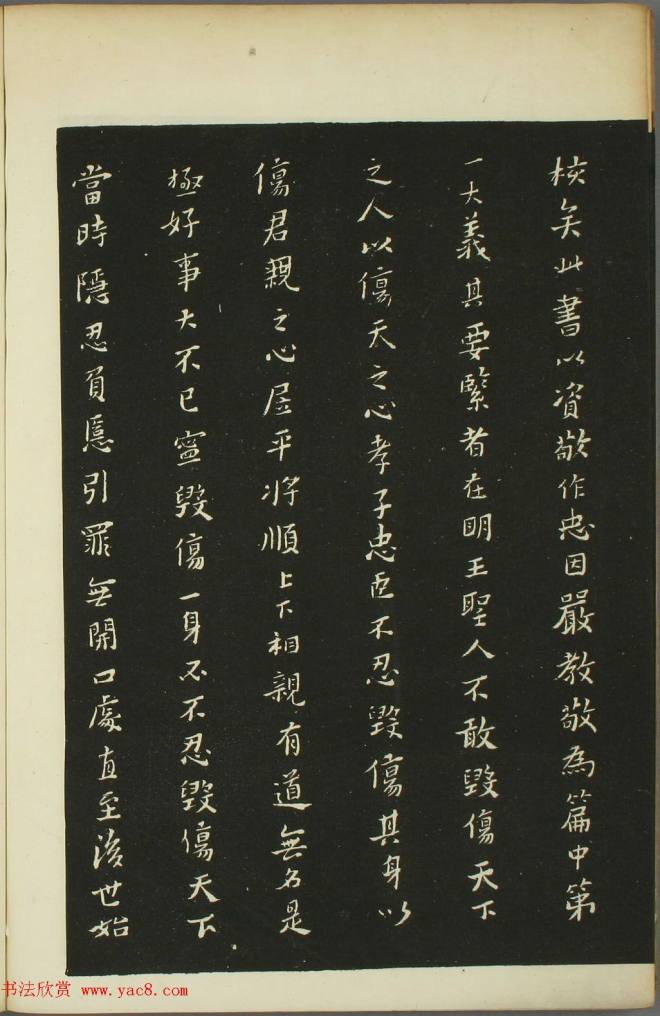 核矣此書以資敬作忠因嚴教敬為篇中第
一大義其要緊者在明王聖人不敢毀傷天下
之人以傷天之心孝子忠臣不忍毀傷其身以
傷君親之心居平將順上下相親有道無名是
極好事大不已寧毀傷一身必不忍毀傷天下
當時隱忍負慝引罪無開口處直至後世始
书法欣赏 www.yac8.com